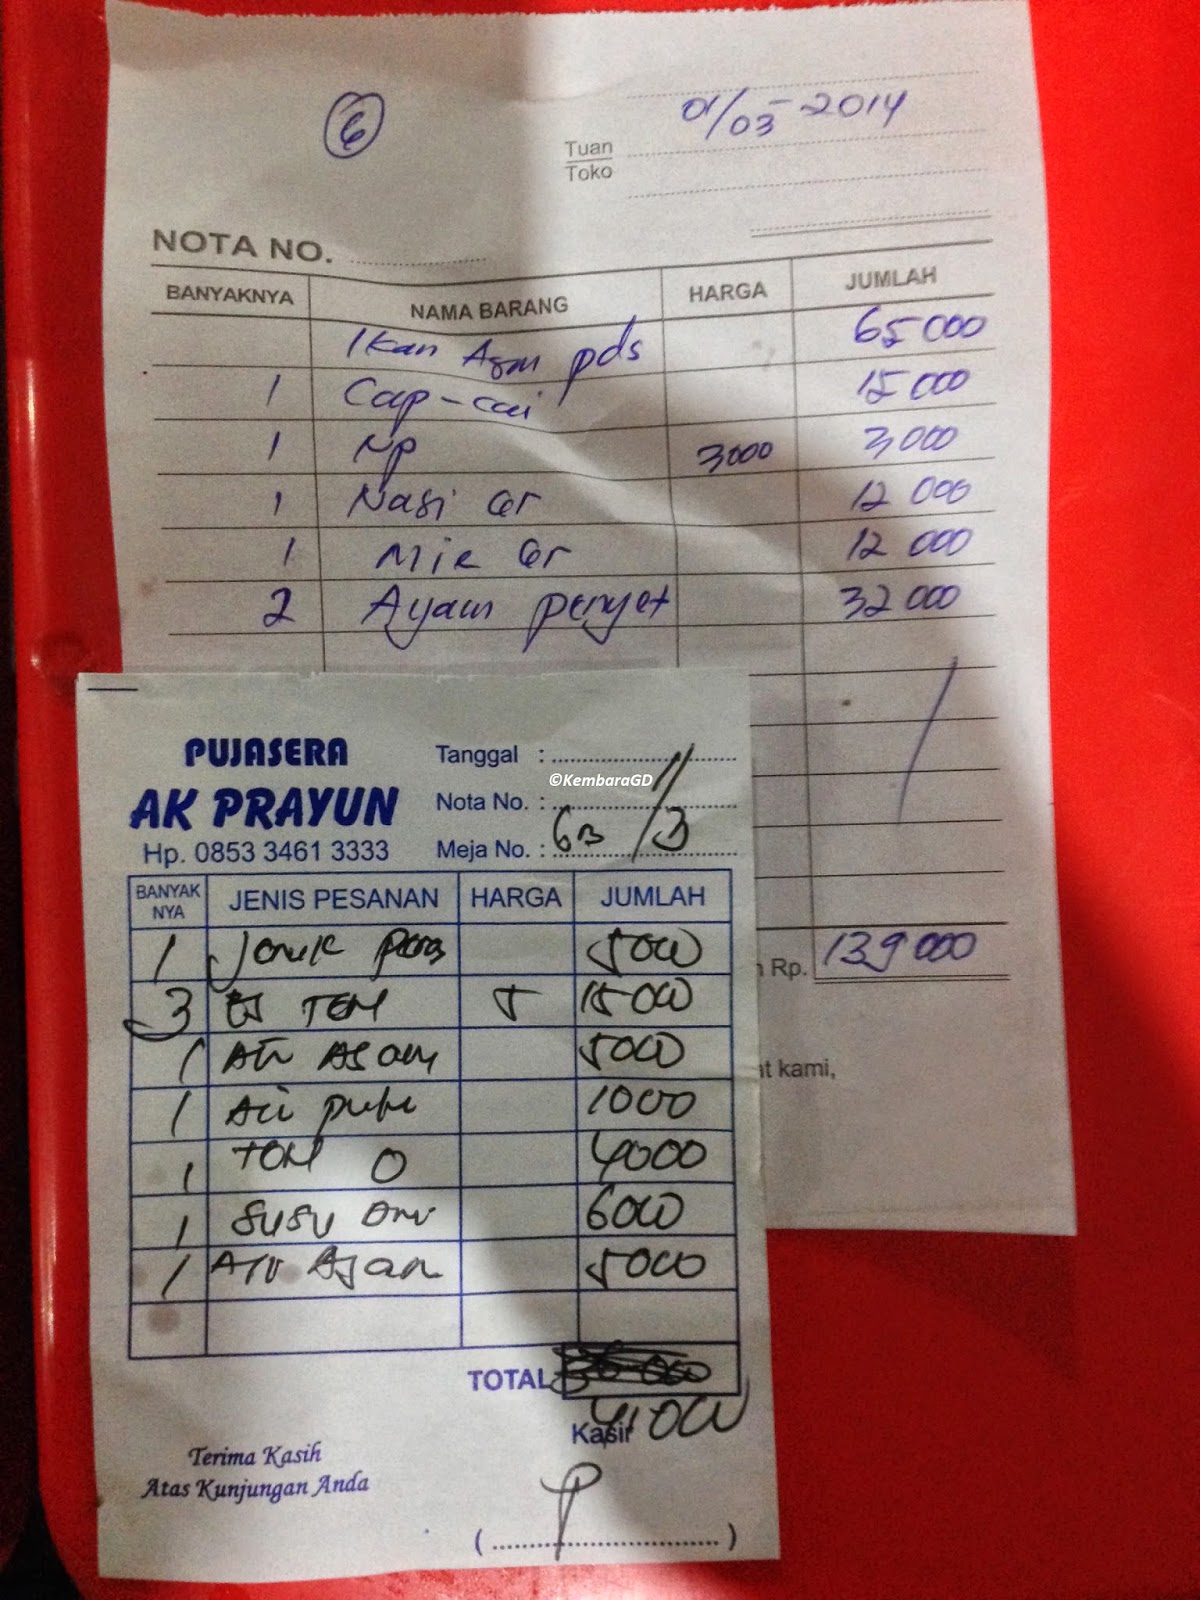 6
01/03-2014
Tuan
Toko
NOTA NO.
BANYAKNYA NAMA BARANG HARGA JUMLAH
Ikan Asam pds 65 000
1 Cap-cai 15 000
1 Np 3000 3 000
1 Nasi Gr 12 000
1 Mie Gr 12 000
2 Ayam penyet 32 000
Rp. 139 000
t kami,
PUJASERA
AK PRAYUN
Hp. 0853 3461 3333
Tanggal :
©KembaraGD
Nota No. :
1/3
Meja No. : 6B
BANYAK NYA JENIS PESANAN HARGA JUMLAH
1 Jeruk panas 5000
3 ES TEH 5 15000
1 Air Asam 5000
1 Air putih 1000
1 TEH O 4000
1 SUSU 6000
1 Air Asam 5000
TOTAL
41000
Kasir
Terima Kasih
Atas Kunjungan Anda
(....................................)